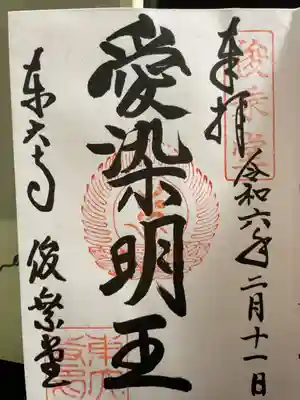 奉拝
令和六年二月十一日
愛染明王
東大寺
俊乗堂